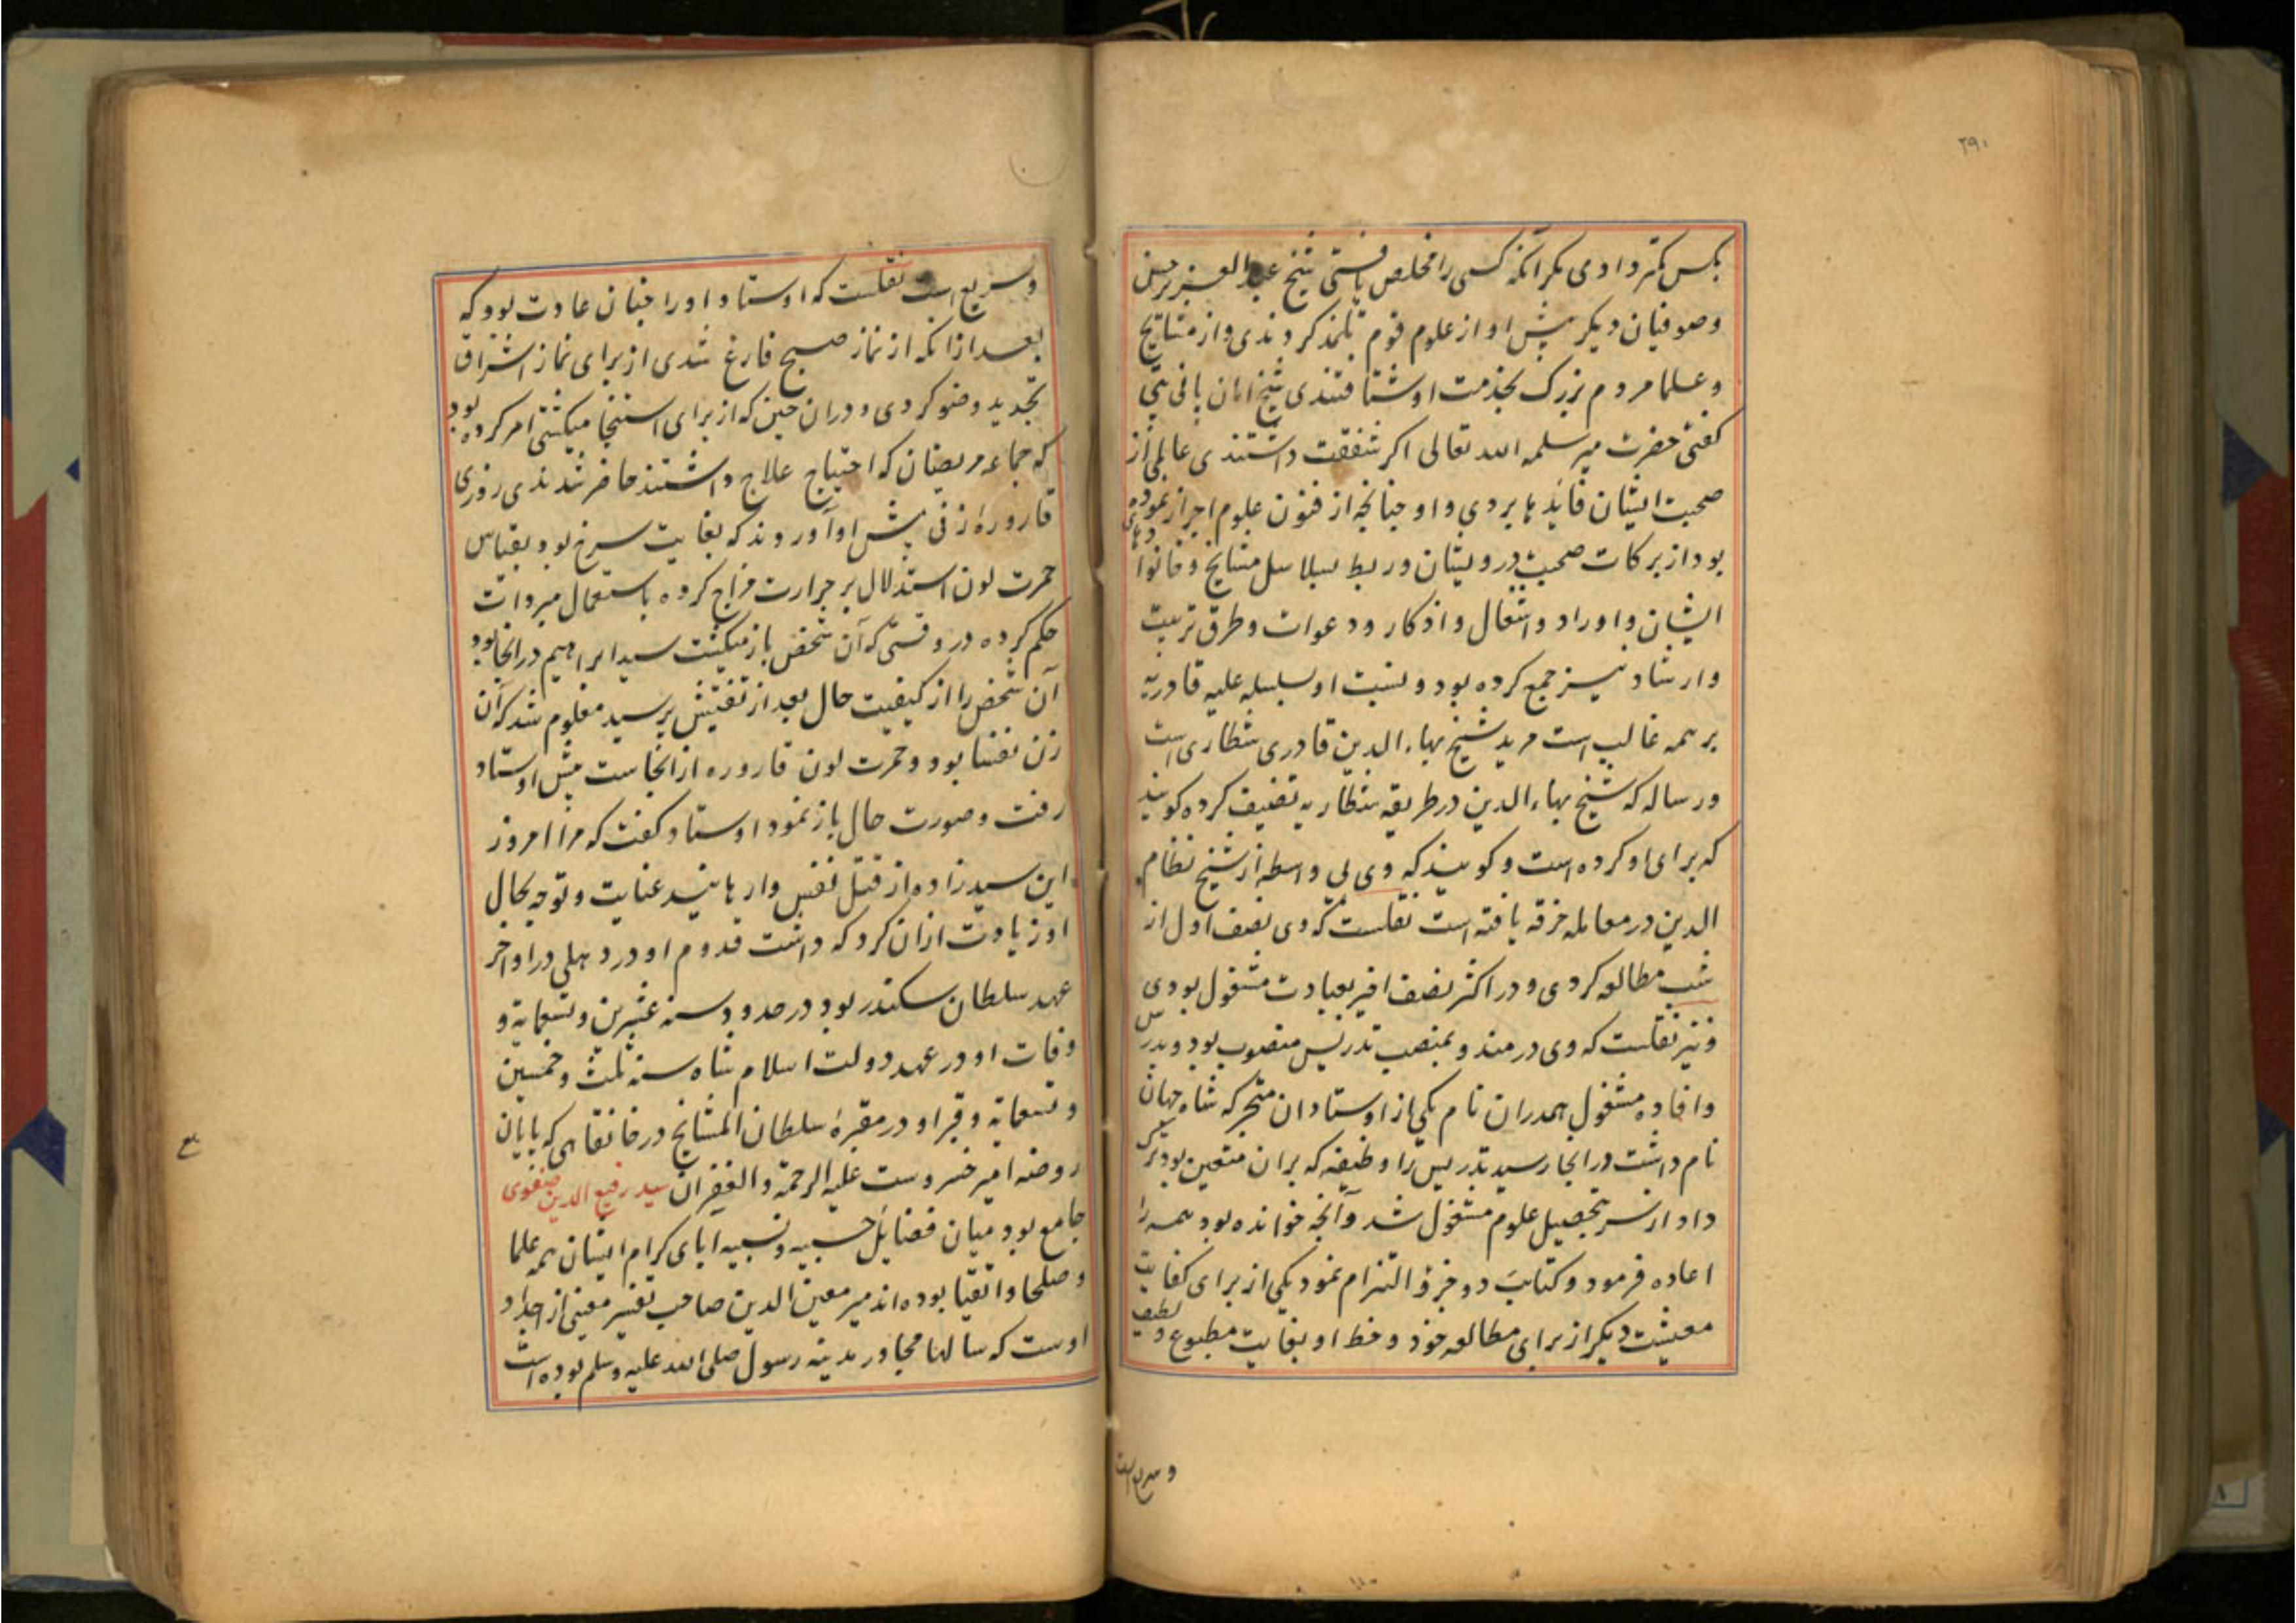 ۲۹۰
بکس کمتر دادی مکر آنکه کسی را مخلص یافتی شیخ عبد العزیز حسن
وصوفیان دیکر پیش او از علوم قوم تلمذ کردندی واز مشایخ
وعلما مردم بزرک بخدمت او شتافتندی شیخ امان پانی پتی
کفتی حضرت میر سلمه الله تعالی اکر شفقت داشتندی عالمی از
صحبت ایشان فائدها بردی واو چنانچه از فنون علوم احراز نموده
بود از برکات صحبت درویشان وربط بسلاسل مشایخ وخانوادهای
ایشان واوراد واشغال واذکار ودعوات وطرق تربیت
وارشاد نیز جمع کرده بود ونسبت او بسلسله علیه قادریه
بر همه غالب است مرید شیخ بهاء الدین قادری شطاری است
ورساله که شیخ بهاء الدین در طریقه شطاریه تصنیف کرده کویند
که برای او کرده است وکویند که وی بی واسطه از شیخ نظام
الدین در معامله خرقه یافته است نقلست که وی نصف اول از
شب مطالعه کردی ودر اکثر نصف اخیر بعبادت مشغول بودی
ونیز نقلست که وی در مندو بمنصب تدریس منصوب بود وبدرس
وافاده مشغول بهمدران نام یکی از اوستادان متبحر که شاه جهان
نام داشت در انجا رسید تدریس را وظیفه که بران متعین بود ترک
داد از سر بتحصیل علوم مشغول شد وآنچه خوانده بود همه را
اعاده فرمود وکتابت دو جزؤ التزام نمود یکی از برای کفایت
معیشت دیکر از برای مطالعه خود وخط او بغایت مطبوع ولطیف
وسریع است
وسریع است نقلست که اوستاد اورا چنان عادت بود که
بعد ازانکه از نماز صبح فارغ شدی از برای نماز اشراق
تجدید وضو کردی ودران حین که از برای استنجا میکشتی امر کرده بود
که جماعه مریضان که احتیاج علاج داشتند حاضر شدندی روزی
قاروره زنی پیش او آوردند که بغایت سرخ بود وبقیاس
حمرت لون استدلال بر حرارت مزاج کرده باستعمال مبردات
حکم کرده در وقتی که آن شخص باز میکشت سید ابراهیم در انجا بود
آن شخص را از کیفیت حال بعد از تفتیش پرسید معلوم شد که آن
زن نفسا بود وحمرت لون قاروره از انجاست پیش اوستاد
رفت وصورت حال باز نمود اوستاد کفت که مرا امروز
این سید زاده از قتل نفس وارهانید عنایت وتوجه بحال
او زیادت ازان کرد که داشت قدوم او در دهلی در اواخر
عهد سلطان سکندر بود در حدود سنه عشرین وتسعمایة و
وفات او در عهد دولت اسلام شاه سنه ثلث وخمسین
وتسعمایة وقبر او در مقبرهٔ سلطان المشایخ در خانقاهی که پایان
روضه امیر خسروست علیه الرحمة والغفران سید رفیع الدین صفوی
جامع بود میان فضایل حسبیه ونسبیه آبای کرام ایشان همه علما
وصلحا واتقیا بوده اند میر معین الدین صاحب تفسیر معینی از اجداد
اوست که سالها مجاور مدینه رسول صلی الله علیه وسلم بوده است